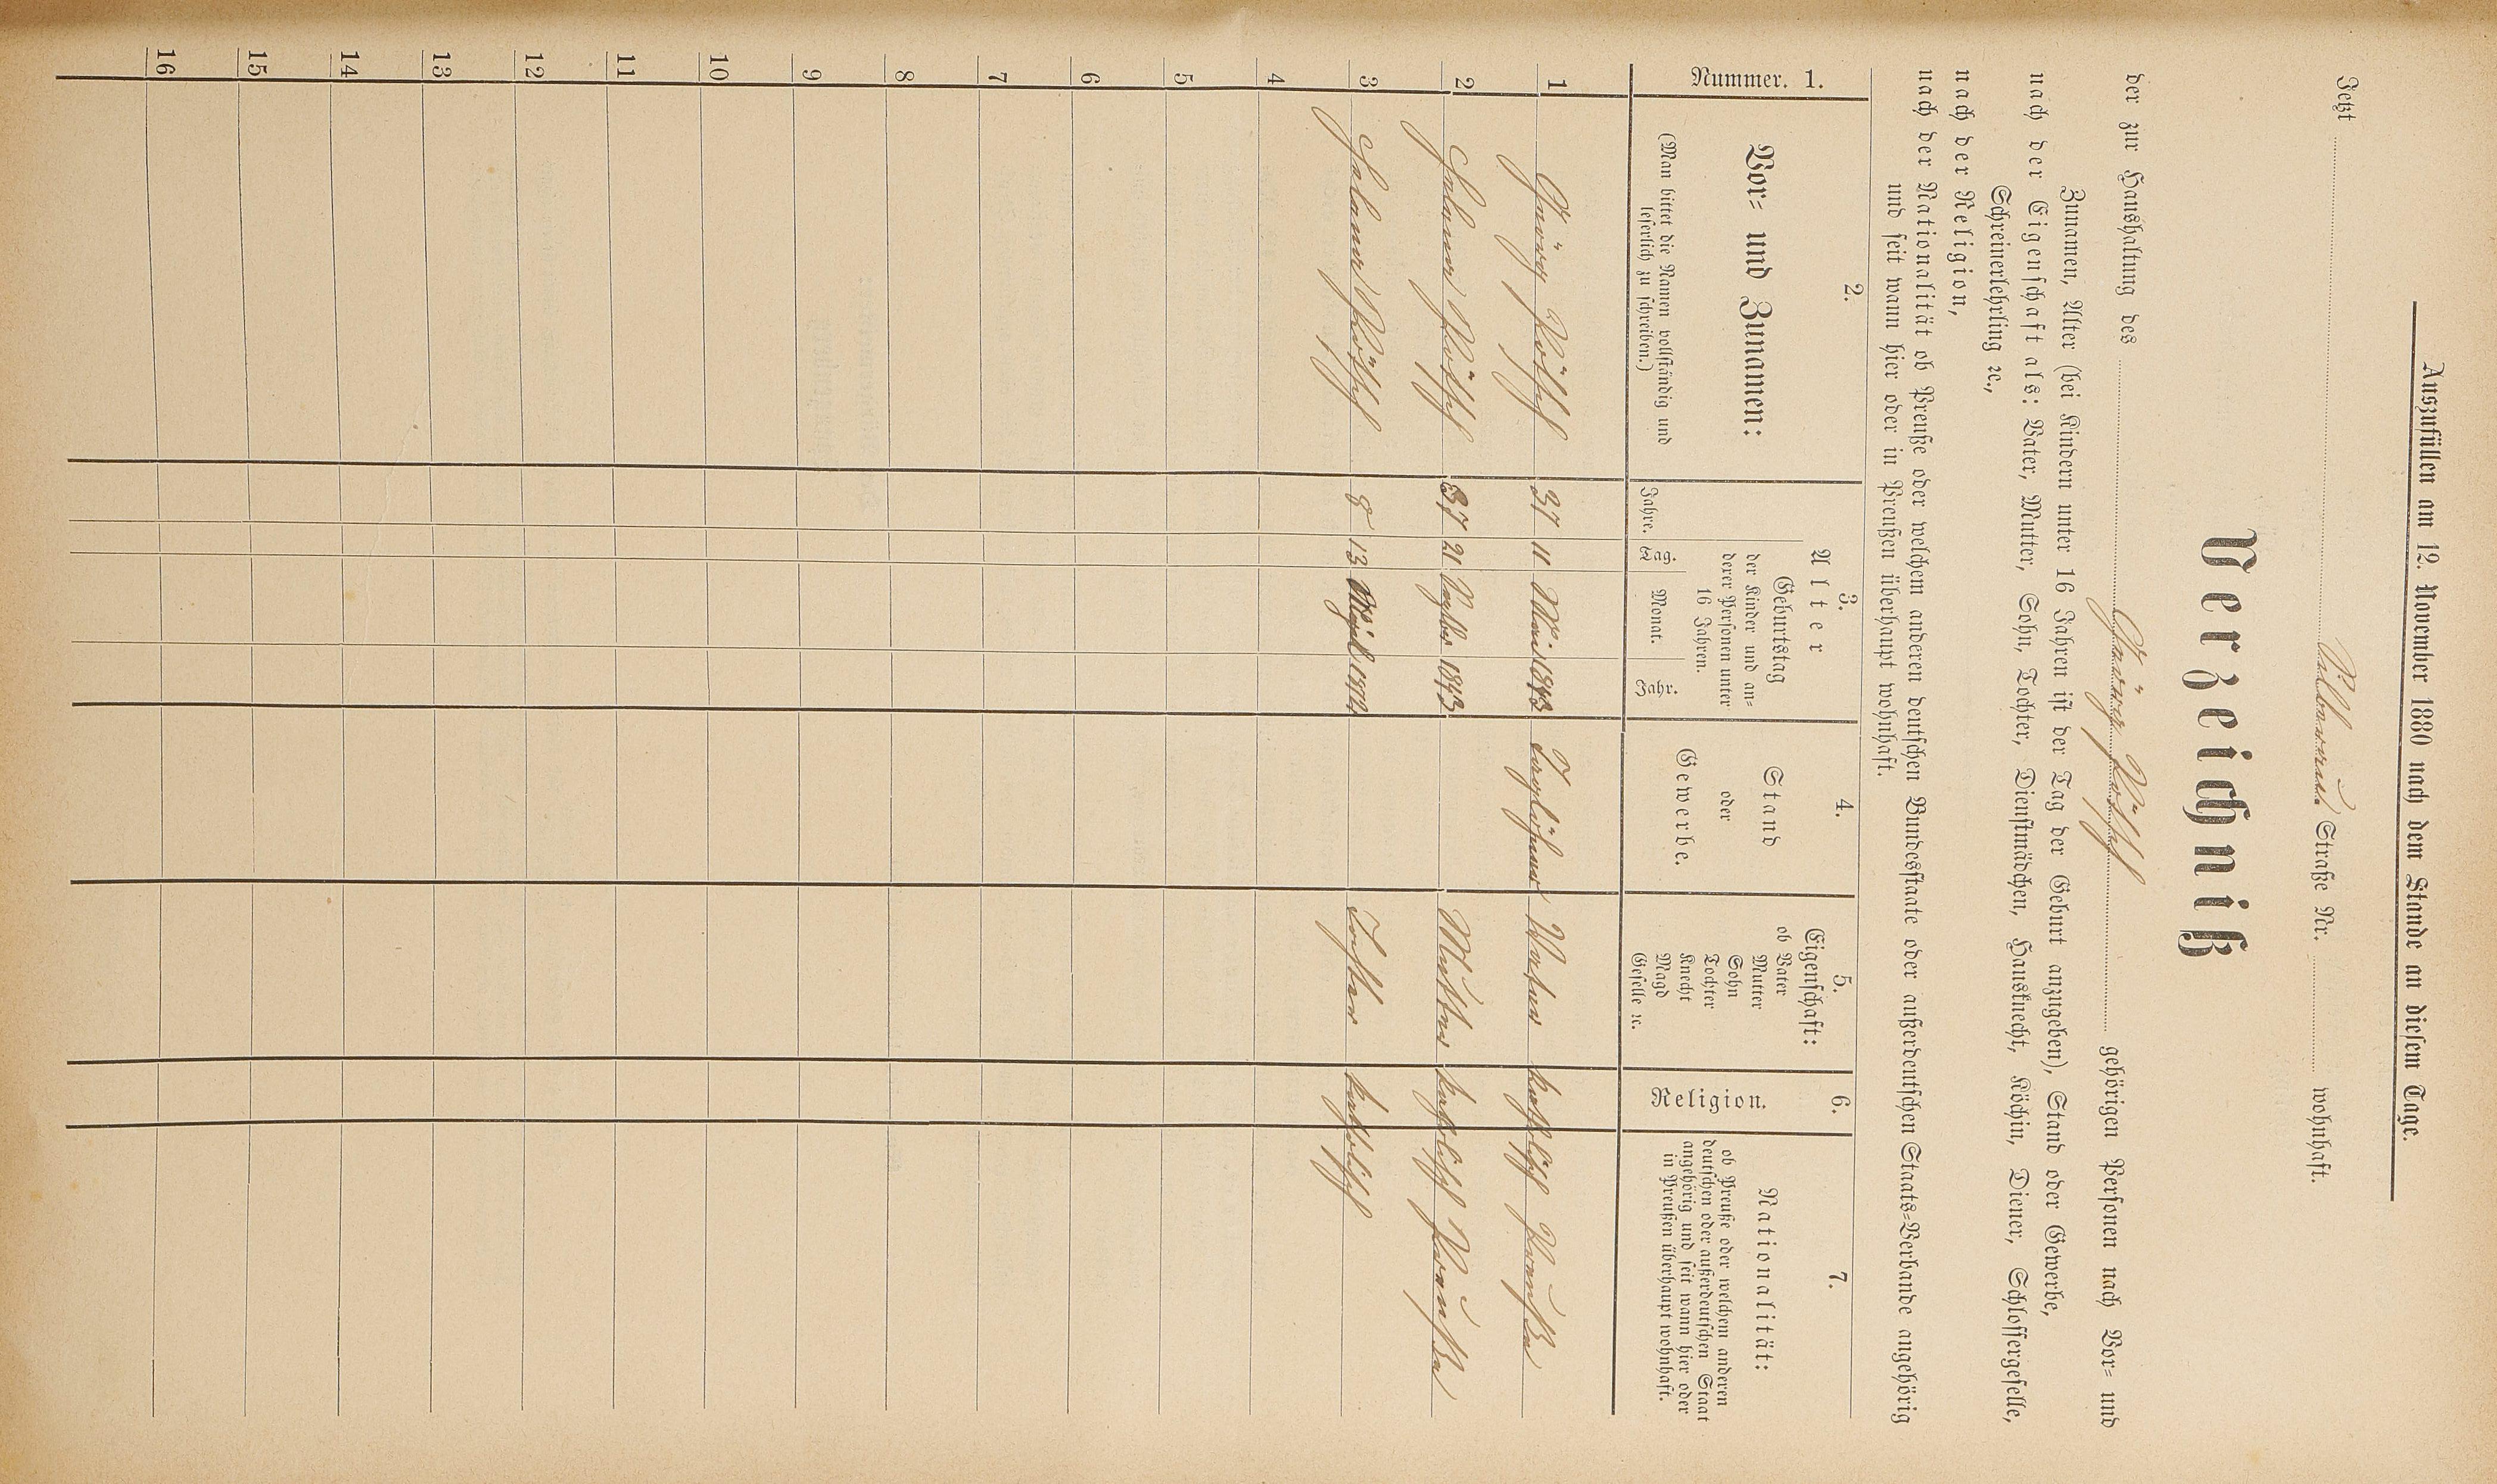 Auszufüllen am 12. November 1880 nach dem Stande an diesem Tage.
Jetzt Straße Nr. wohnhaft.
Verzeichniß
der zur Haushaltung des gehörigen Personen nach Vor= und
Zunamen, Alter (bei Kindern unter 16 Jahren ist der Tag der Geburt anzugeben), Stand oder Gewerbe,
nach der Eigenschaft als: Vater, Mutter, Sohn, Tochter, Dienstmädchen, Hausknecht, Köchin, Diener, Schlossergeselle,
Schreinerlehrling ꝛc.,
nach der Religion,
nach der Nationalität ob Preuße oder welchem anderen deutschen Bundesstaate oder außerdeutschen Staats=Verbande angehörig
und seit wann hier oder in Preußen überhaupt wohnhaft.
Nummer. 1.
2.
Vor= und Zunamen:
(Man bittet die Namen vollständig und
leserlich zu schreiben.)
3.
Alter
Geburtstag
der Kinder und an=
derer Personen unter
16 Jahren.
Jahre. Tag. Monat. Jahr.
4.
Stand
oder
Gewerbe.
5.
Eigenschaft:
ob Vater
Mutter
Sohn
Tochter
Knecht
Magd
Geselle ꝛc.
6.
Religion.
7.
Nationalität:
ob Preuße oder welchem anderen
deutschen oder außerdeutschen Staat
angehörig und seit wann hier oder
in Preußen überhaupt wohnhaft.
1 37 11 Mai 1843 Taglöhner Vater katholisch Preuße
2 37 21 1843 Mutter katholisch Preuße
3 8 13 Tochter katholisch
4
5
6
7
8
9
10
11
12
13
14
15
16